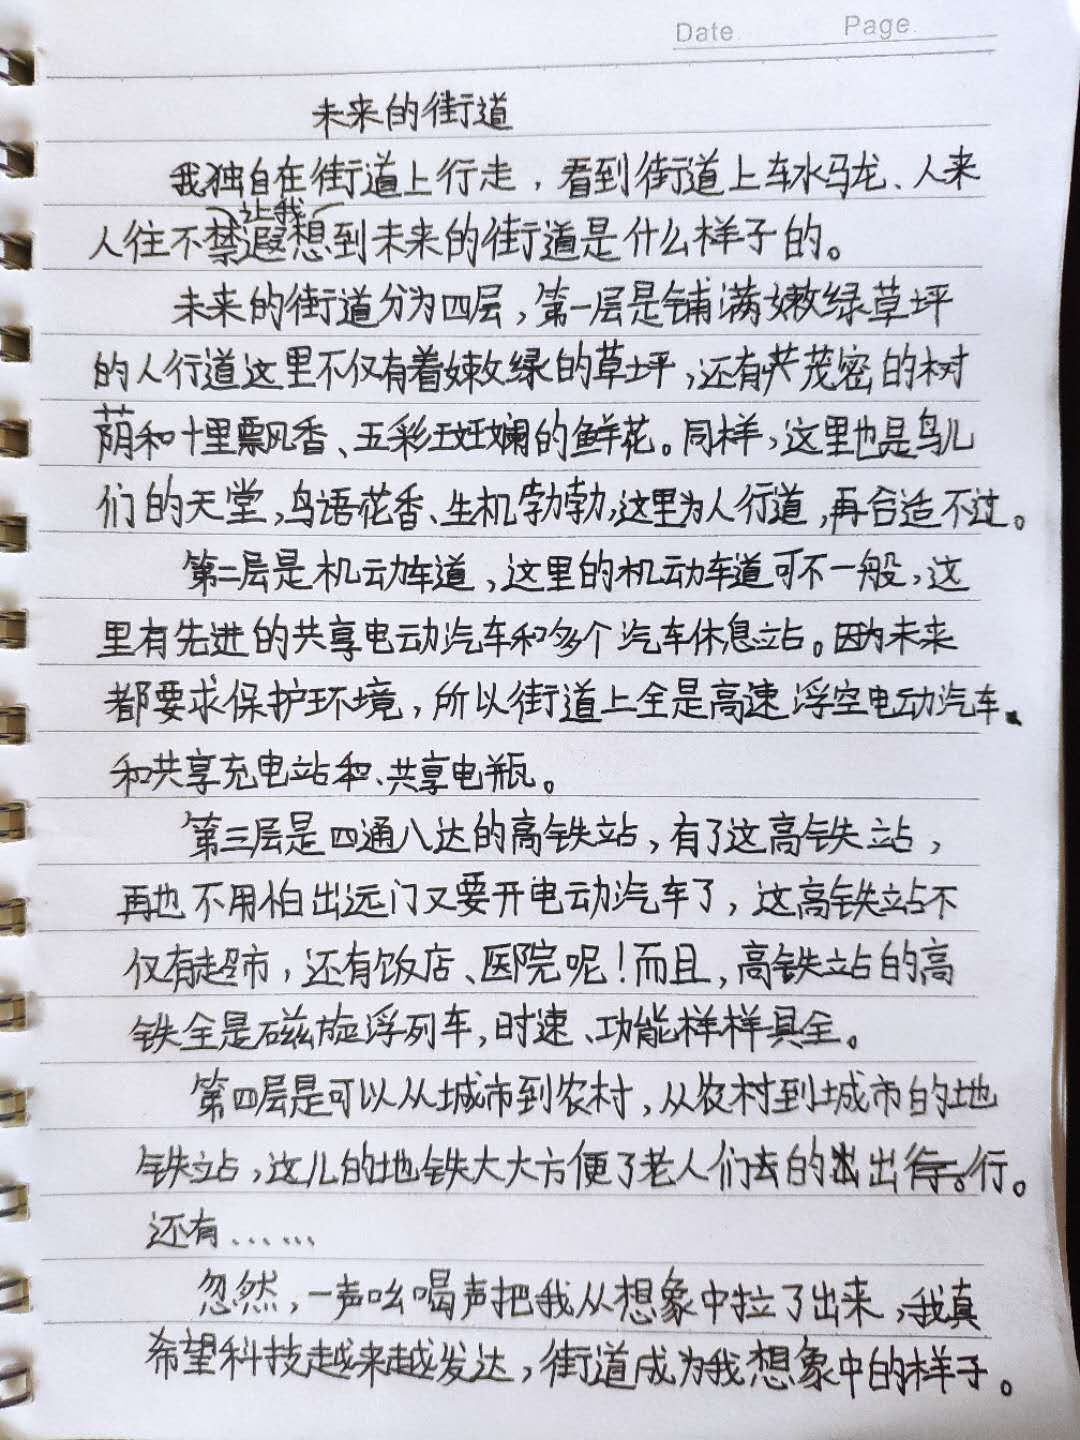 Date Page
未来的街道
我独自在街道上行走，看到街道上车水马龙、人来
让我
人往不禁遐想到未来的街道是什么样子的。
未来的街道分为四层，第一层是铺满嫩绿草坪
的人行道这里不仅有着嫩绿的草坪，还有茂密的树
荫和十里飘香、五彩斑斓的鲜花。同样，这里也是鸟儿
们的天堂，鸟语花香、生机勃勃，这里为人行道，再合适不过。
第二层是机动车道，这里的机动车道可不一般，这
里有先进的共享电动汽车和多个汽车休息站。因为未来
都要求保护环境，所以街道上全是高速浮空电动汽车、
和共享充电站和、共享电瓶。
第三层是四通八达的高铁站，有了这高铁站，
再也不用怕出远门又要开电动汽车了，这高铁站不
仅有超市，还有饭店、医院呢！而且，高铁站的高
铁全是磁旋浮列车，时速、功能样样具全。
第四层是可以从城市到农村，从农村到城市的地
铁站，这儿的地铁大大方便了老人们去的出行。
还有……
忽然，一声吆喝声把我从想象中拉了出来，我真
希望科技越来越发达，街道成为我想象中的样子。